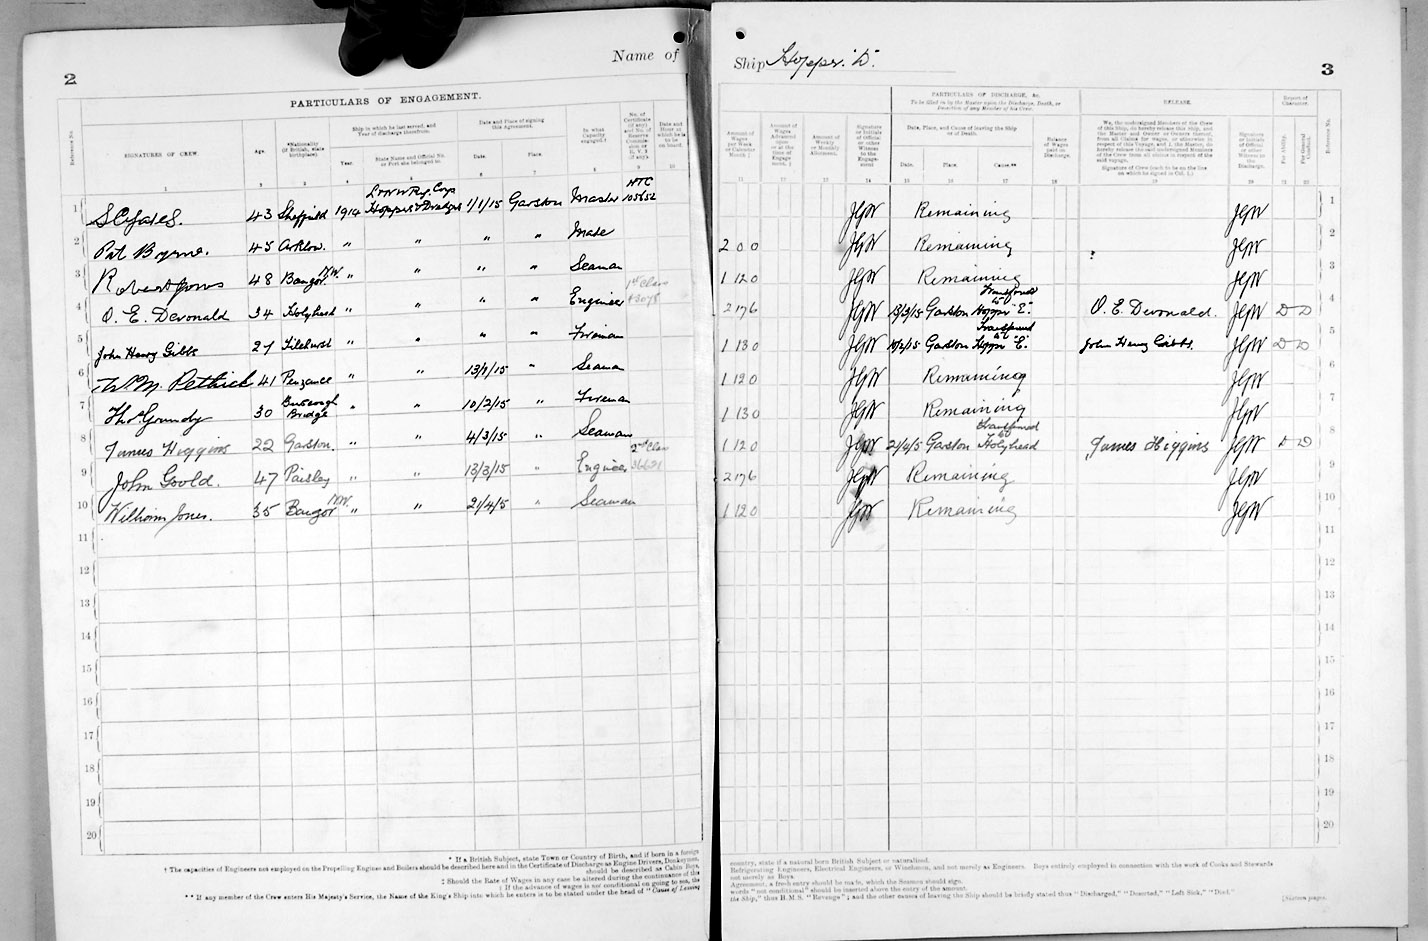 2
Name of
Ship Hopper "D".
3
PARTICULARS OF ENGAGEMENT.
Reference No.
SIGNATURES OF CREW
Age.
*Nationality (if British, state birthplace).
Ship in which he last served, and Year of discharge therefrom.
Year.
State Name and Official No. or Port she belonged to.
Date and Place of signing this Agreement.
Date.
Place.
In what Capacity engaged.†
No. of Certificate (if any) and No. of Reserve Commission or R. V. 2 (if any).
Date and Hour at which he is to be on board.
1 2 3 4 5 6 7 8 9 10
PARTICULARS OF DISCHARGE, &c.
To be filled in by the Master upon the Discharge, Death, or Desertion of any Member of his Crew.
RELEASE.
Report of Character.
Amount of Wages per Week or Calendar Month ‡
Amount of Wages Advanced upon or at the time of Engagement. ‡
Amount of Weekly or Monthly Allotment.
Signature or Initials of Official or other Witness to the Engagement
Date, Place, and Cause of leaving the Ship or of Death.
Date.
Place.
Cause.**
Balance of Wages paid on Discharge.
We, the undersigned Members of the Crew of this Ship, do hereby release this ship, and the Master and Owner or Owners thereof, from all Claims for wages, or otherwise in respect of this Voyage, and I, the Master, do hereby release the undersigned Members of the Crew from all claims in respect of the said voyage.
Signature of Crew (each to be on the line on which he signed in Col. 1.)
Signature or Initials of Official or other Witness to the Discharge.
For Ability.
For General Conduct.
Reference No.
11 12 13 14 15 16 17 18 19 20 21 22
1 S Yates. 43 Sheffield 1914 L & N W Ry. Coys Hopper & Dredger 1/1/15 Garston Master HTC 105652 JGW Remaining JGW 1
2 Pat Byrne. 45 Arklow. " " " " Mate 2 0 0 JGW Remaining JGW 2
3 Robert Jones 48 Bangor N.W. " " " " Seaman 1 12 0 JGW Remaining JGW 3
4 O. E. Devonald 34 Holyhead " " " " Engineer 1st Class 43078 2 17 6 JGW 13/3/15 Garston Transferred to Hopper "E". O. E. Devonald. JGW D D 4
5 John Henry Gibbs 27 Tilehurst " " " " Fireman 1 13 0 JGW 10/2/15 Garston Transferred to Hopper "E". John Henry Gibbs. JGW D D 5
6 Wm Pethick 41 Penzance " " 13/1/15 " Seaman 1 12 0 JGW Remaining JGW 6
7 Thos Grundy 30 Burscough Bridge " " 10/2/15 " Fireman 1 13 0 JGW Remaining JGW 7
8 James Higgins 22 Garston. " " 4/3/15 " Seaman 1 12 0 JGW 21/4/5 Garston Transferred to Holyhead James Higgins JGW D D 8
9 John Goold. 47 Paisley " " 13/3/15 " Engineer 2nd Class 36621 2 17 6 JGW Remaining JGW 9
10 William Jones. 35 Bangor N.W. " " 21/4/5 " Seaman 1 12 0 JGW Remaining JGW 10
11 11
12 12
13 13
14 14
15 15
16 16
17 17
18 18
19 19
20 20
* If a British Subject, state Town or Country of Birth, and if born in a foreign
country, state if a natural born British Subject or naturalised.
† The capacities of Engineers not employed on the Propelling Engines and Boilers should be described here and in the Certificate of Discharge as Engine Drivers, Donkeymen,
Refrigerating Engineers, Electrical Engineers, or Winchmen, and not merely as Engineers. Boys entirely employed in connection with the work of Cooks and Stewards
should be described as Cabin Boys,
not merely as Boys.
‡ Should the Rate of Wages in any case be altered during the continuance of this
Agreement, a fresh entry should be made, which the Seamen should sign.
§ If the advance of wages is not conditional on going to sea, the
words "not conditional" should be inserted above the entry of the amount.
** If any member of the Crew enters His Majesty's Service, the Name of the King's Ship into which he enters is to be stated under the head of "Cause of Leaving
the Ship," thus H.M.S. "Revenge"; and the other causes of leaving the Ship should be briefly stated thus "Discharged," "Deserted," "Left Sick," "Died."
[Sixteen pages.